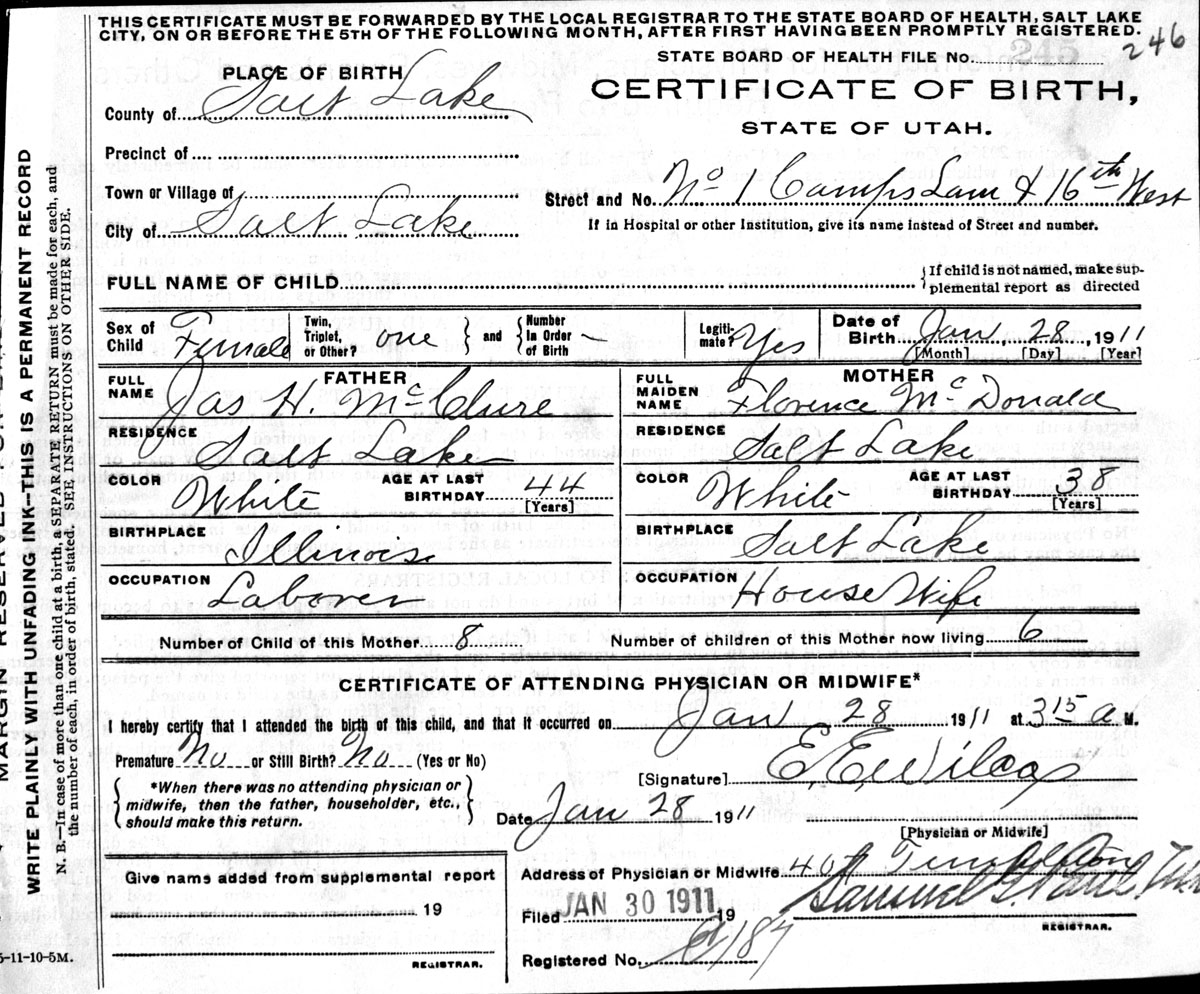 THIS CERTIFICATE MUST BE FORWARDED BY THE LOCAL REGISTRAR TO THE STATE BOARD OF HEALTH, SALT LAKE
CITY, ON OR BEFORE THE 5TH OF THE FOLLOWING MONTH, AFTER FIRST HAVING BEEN PROMPTLY REGISTERED.
STATE BOARD OF HEALTH FILE No. 245 246
PLACE OF BIRTH
CERTIFICATE OF BIRTH,
STATE OF UTAH.
County of Salt Lake
Precinct of
Town or Village of
Street and No. No 1 Camps Lam & 16th West
City of Salt Lake
If in Hospital or other Institution, give its name instead of Street and number.
FULL NAME OF CHILD
If child is not named, make sup-
plemental report as directed
Sex of Child Female
Twin, Triplet, or Other? one and Number in Order of Birth
Legiti-mate? Yes
Date of Birth Jan, 28, 1911
[Month] [Day] [Year]
FATHER
FULL NAME Jas H. McClure
RESIDENCE Salt Lake
COLOR White AGE AT LAST BIRTHDAY 44 [Years]
BIRTHPLACE Illinois
OCCUPATION Laborer
MOTHER
FULL MAIDEN NAME Florence McDonald
RESIDENCE Salt Lake
COLOR White AGE AT LAST BIRTHDAY 38 [Years]
BIRTHPLACE Salt Lake
OCCUPATION House Wife
Number of Child of this Mother 8 Number of children of this Mother now living 6
CERTIFICATE OF ATTENDING PHYSICIAN OR MIDWIFE*
I hereby certify that I attended the birth of this child, and that it occurred on Jan 28 1911 at 3 15 a M.
Premature No or Still Birth? No (Yes or No)
[Signature] E. E. Wilcox
*When there was no attending physician or
midwife, then the father, householder, etc.,
should make this return.
Date Jan 28 1911
[Physician or Midwife]
Give name added from supplemental report
19
REGISTRAR.
Address of Physician or Midwife
Filed JAN 30 1911 19
Samuel G. Paul
REGISTRAR.
Registered No. 187
MARGIN RESERVED FOR BINDING
WRITE PLAINLY WITH UNFADING INK—THIS IS A PERMANENT RECORD
N. B.—In case of more than one child at a birth, a SEPARATE RETURN must be made for each, and
the number of each, in order of birth, stated. SEE INSTRUCTIONS ON OTHER SIDE.
5-11-10-5M.